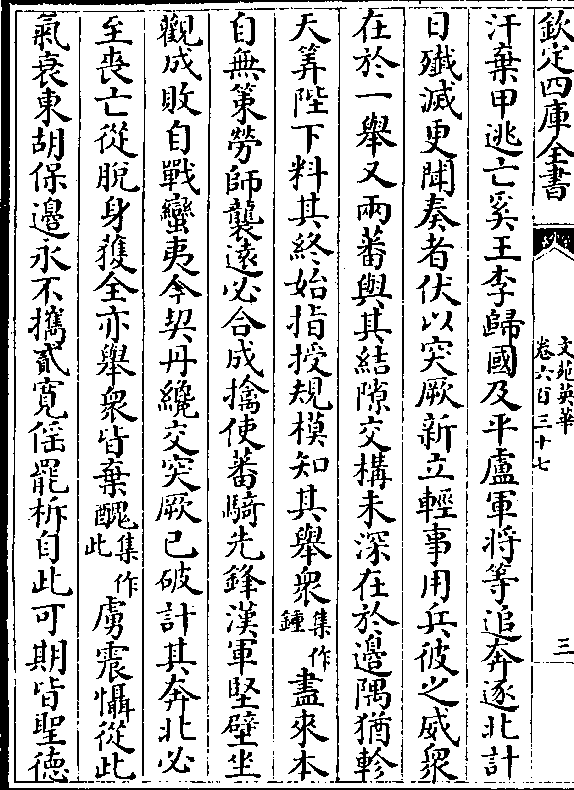 欽定四庫全書
文苑英華
卷六百三十七
三
汗棄甲逃亡奚王李歸國及平盧軍將等追奔逐北計
日殱滅更聞奏者伏以突厥新立輕事用兵彼之威衆
在於一舉又兩蕃與其結隙交構未深在於邊隅猶軫
天筭陛下料其終始指授規模知其舉衆集作鍾盡來本
自無策勞師襲遠必合成擒使蕃騎先鋒漢軍堅壁坐
觀成敗自戰蠻夷今契丹纔交突厥已破計其奔北必
至喪亡從脫身獲全亦舉衆皆棄醜集作此虜震懾從此
氣衰東胡保邊永不攜貳寬徭罷柝自此可期皆聖德